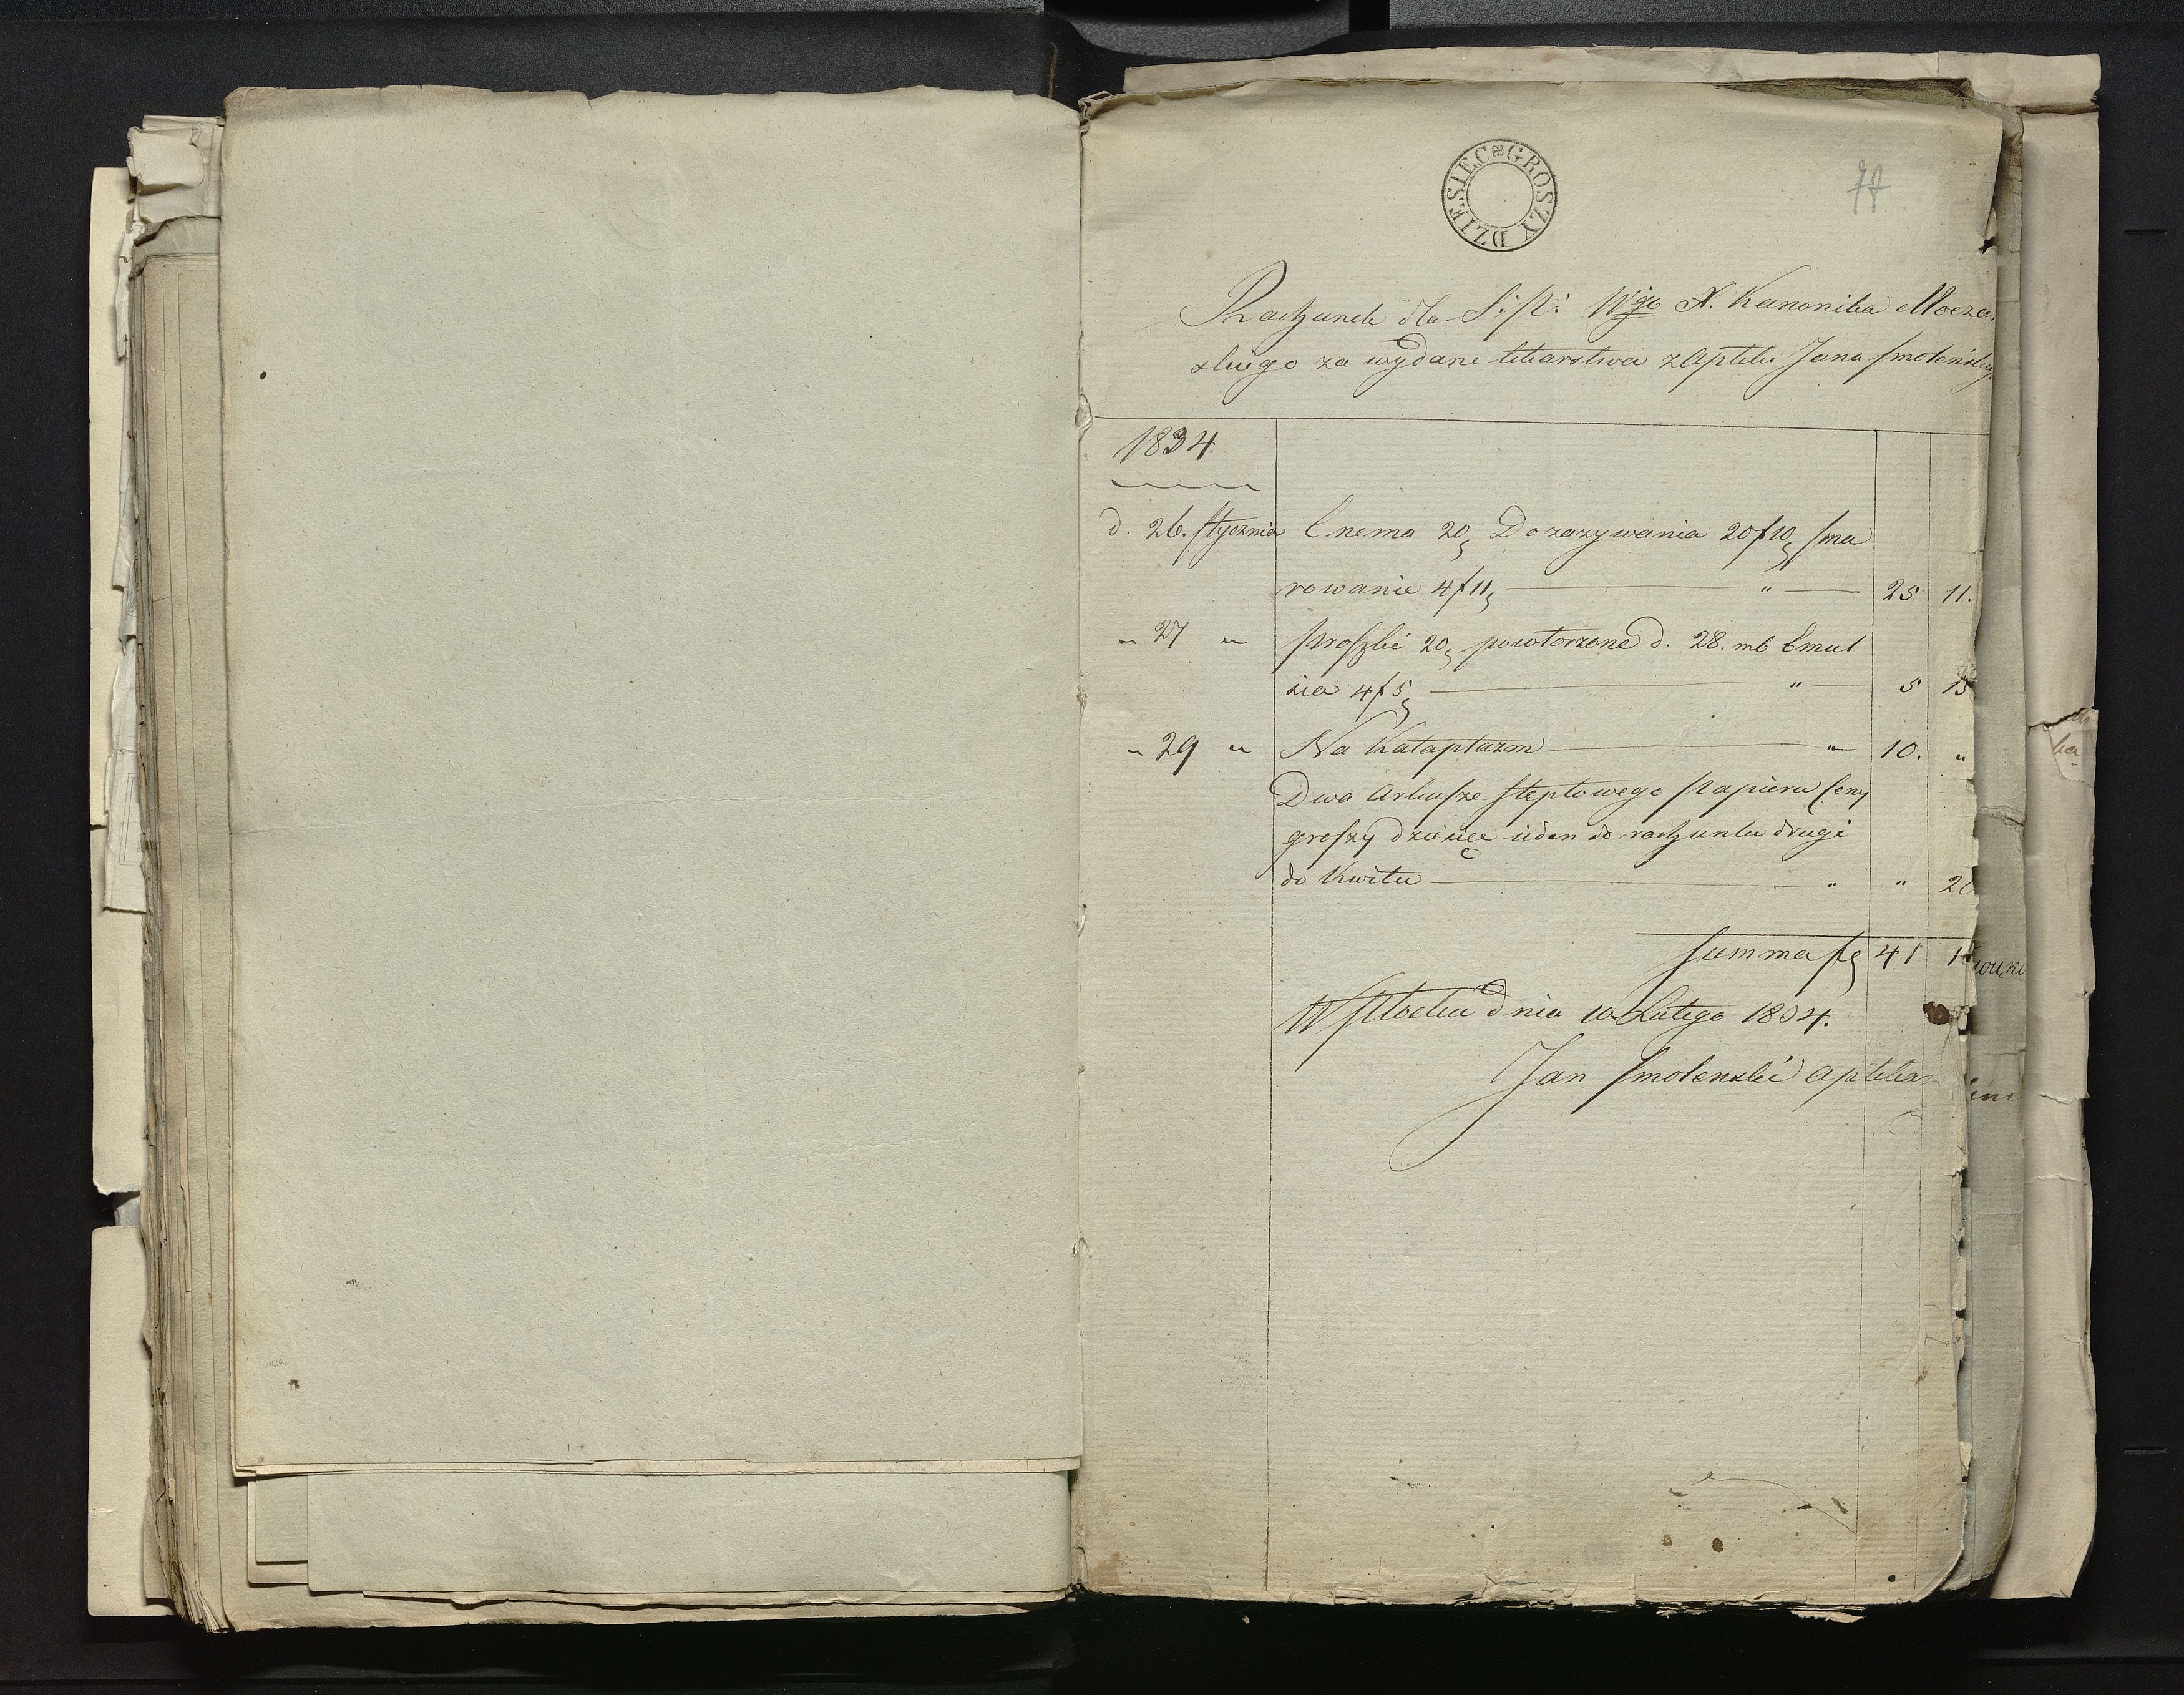 GROSZY DZIESIEC
77
Rachunek dla S: P: Wgo X. Kanonika Mocza-
skiego za wydane lekarstwa z Apteki Jana Smoleńskieg
1834
d. 26. Stycznia Enema 20, Do zazywania 20 f 10, Sma
rowanie 4 f 11, " 25 11.
" 27 " Proszki 20, powtorzone d. 28. mb Emul
sia 4 f 5, " 5 15
" 29 " Na Kataplazm " 10. "
Dwa Arkusze stęplowego Papieru Ceny
groszy dziesięć ieden do rachunku drugi
do Kwitu " " 20
Summa fl 41
W Płocku Dnia 10 Lutego 1834.
Jan Smolenski Aptekarz